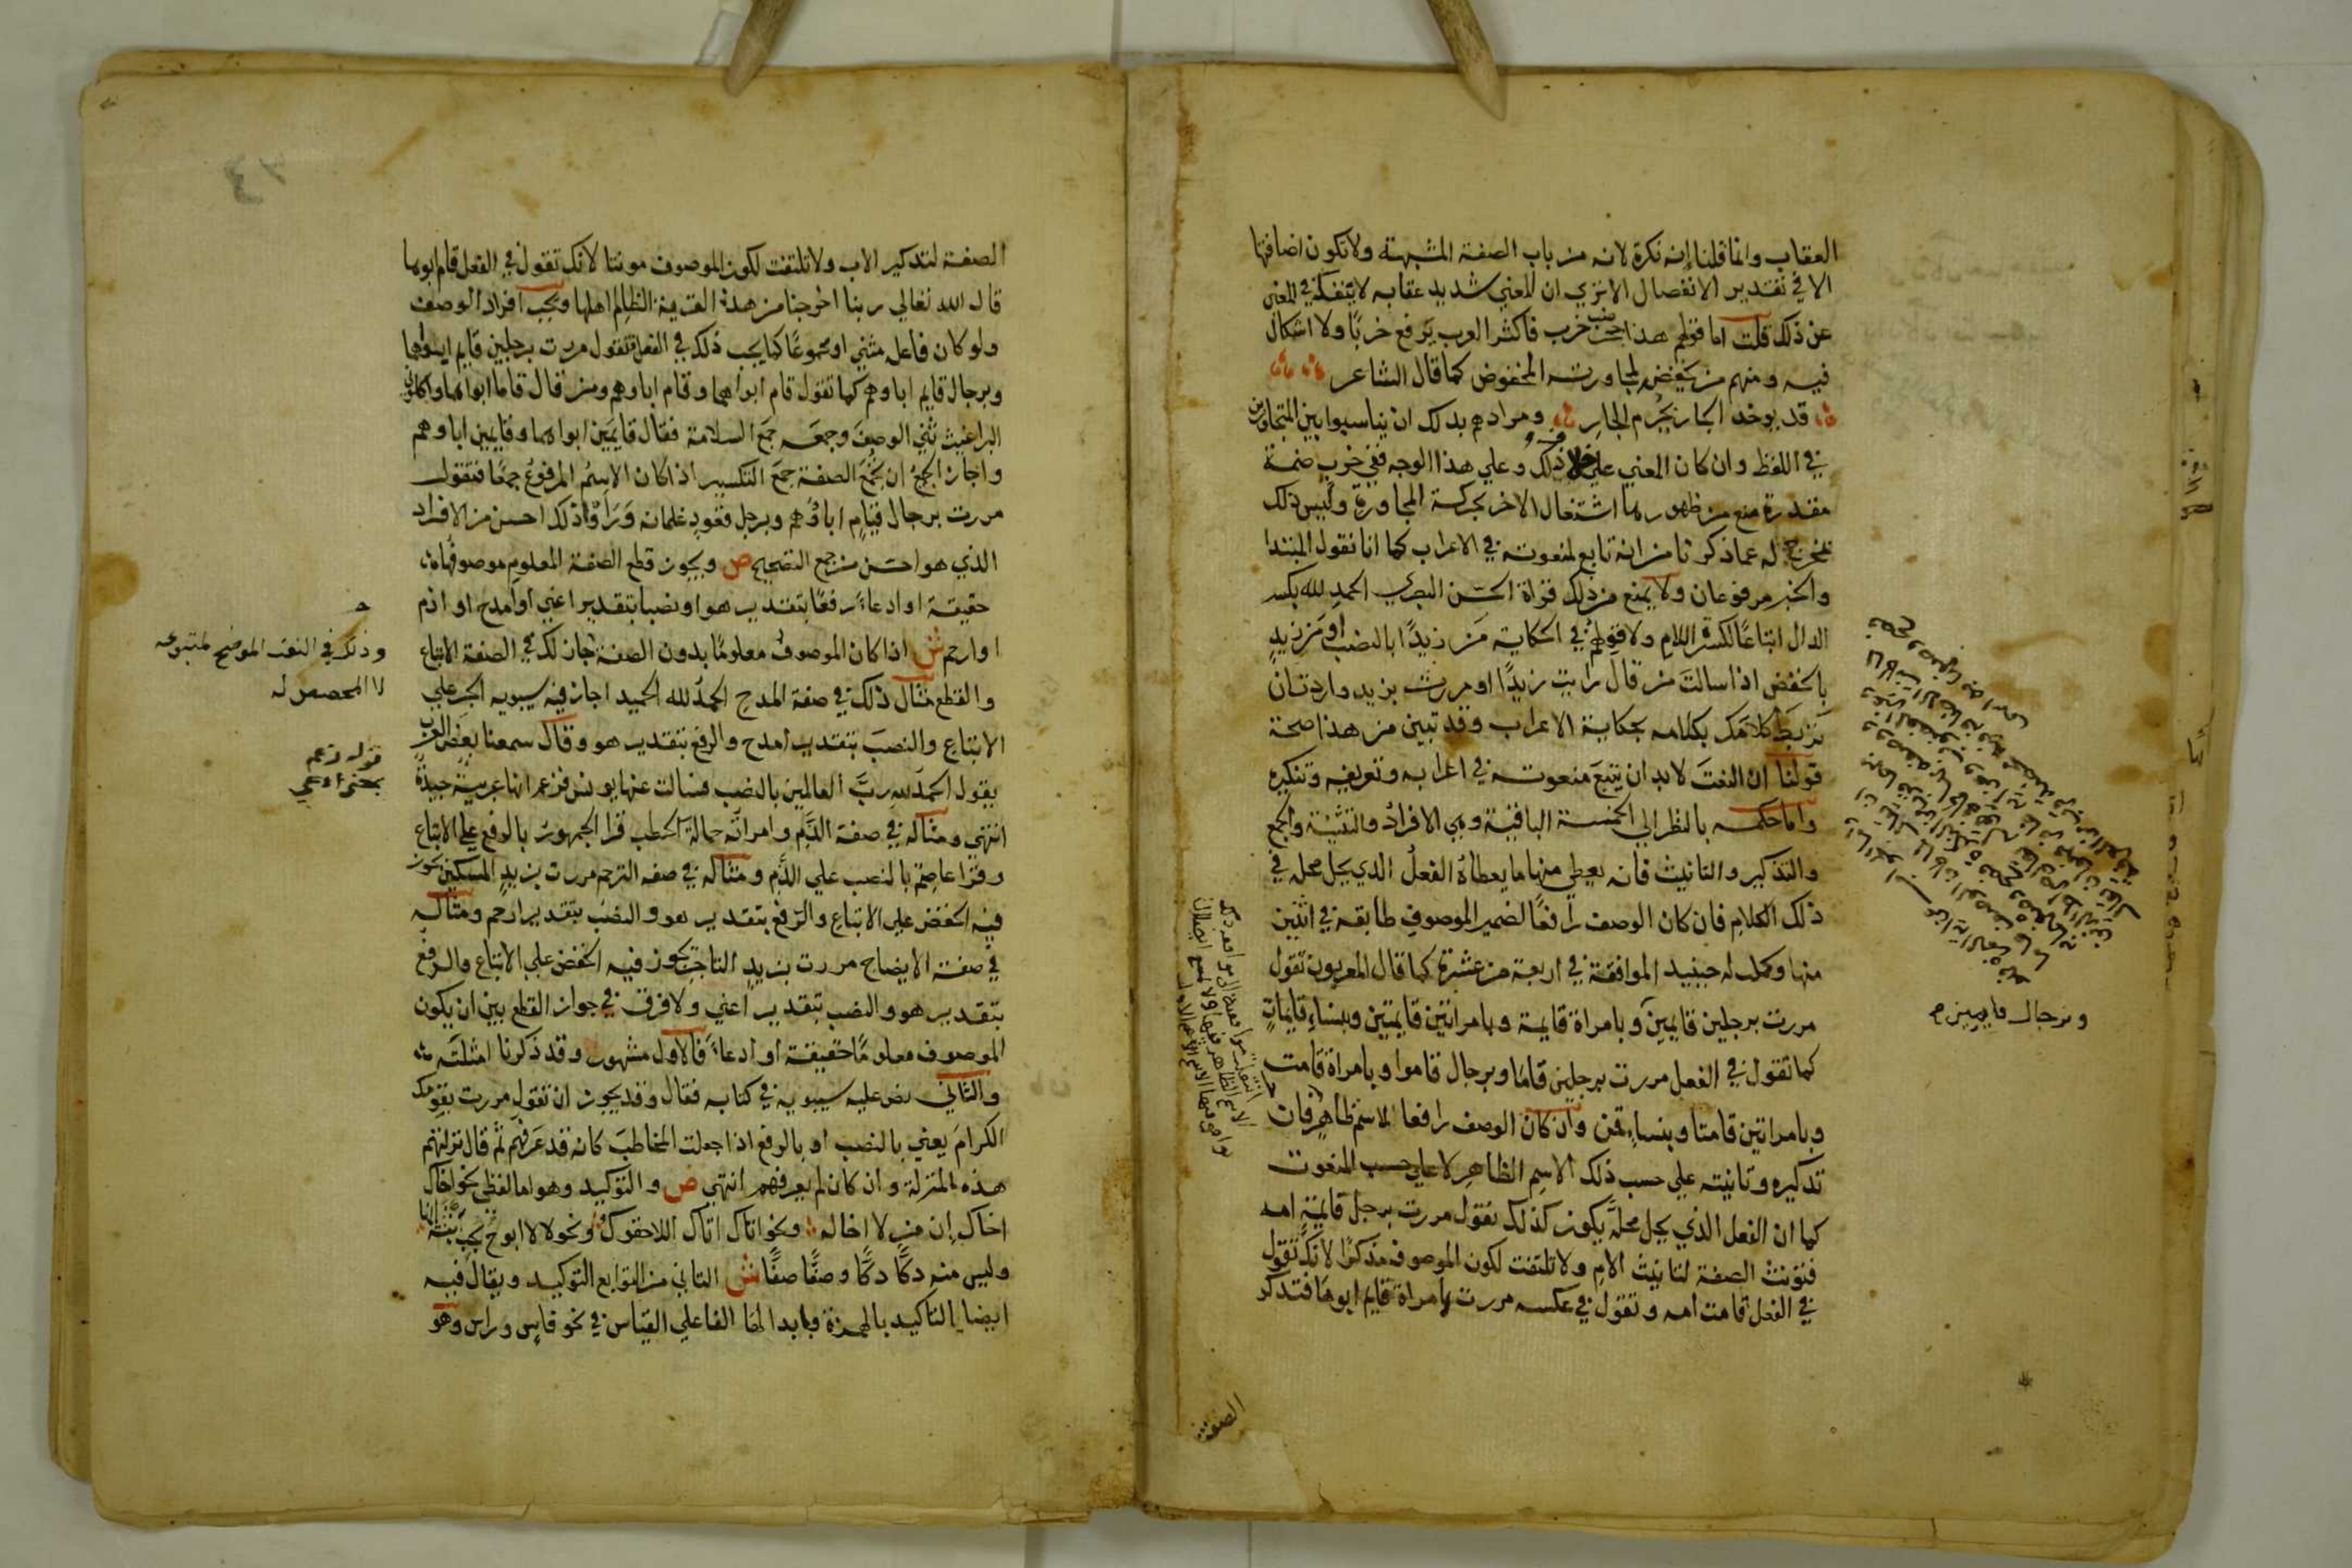 العقاب وانما قلنا إنه نكرة لانه من باب الصفة المشبهة ولا تكون اضافتها
الا في تقدير الانفصال الا تري ان المعني شديد عقابه لا ينفك في المعني
عن ذلك قلت اما قولهم هذا جحر ضب خرب فاكثر العرب يرفع خربًا ولا اشكال
فيه ومنهم من يخفضه لمجاورته المخفوض كما قال الشاعر
قد يوخذ الجار بجُرم الجارِ ومرادهم بذلك ان يناسبوا بين المتجاورين
في اللفظ وان كان المعني علي خلاف ذلك وعلي هذا الوجه ففي خربٍ ضمة
مقدرة منع من ظهورها اشتغال الاخر بحركة المجاورة وليس ذلك
بمخرج له عما ذكرنا من انه تابع لمنعوته في الاعراب كما انا نقول المبتدا
والخبر مرفوعان ولا يمنع من ذلك قراة الحسن البصري الحمدِ لله بكسر
الدال اتباعًا لكسرة اللام ولا قولهم في الحكاية مَن زيدًا بالنصب او مَن زيدٍ
بالخفض اذا سالتَ من قال رايت زيدًا او مررت بزيد واردت ان
تربطَ كلامَك بكلامه بحكاية الاعراب وقد تبين من هذا صحة
قولنا ان النعتَ لا بد ان يتبعَ منعوته في اعرابه وتعريفه وتنكيره
واما حكمه بالنظر الي الخمسة الباقية وهي الافرادُ والتثنية والجمع
والتذكير والتانيث فانه يعطي منها ما يعطاهُ الفعلُ الذي يحل محله في
ذلك الكلامِ فان كان الوصف رافعًا لضمير الموصوفِ طابقه في اثنين
منها وكمل له حينيد الموافقة في اربعة من عشرة كما قال المعربون تقول
مررت برجلين قايمينَ وبامراة قايمة وبامراتين قايمتين وبنساءٍ قايماتٍ
كما تقول في الفعل مررت برجلين قامَا وبرجال قاموا وبامراة قامت
وبامراتين قامتا وبنساءٍ قمن وان كان الوصف رافعا لاسمٍ ظاهرٍ فان
تذكيره وتانيثه علي حسب ذلك الاسمِ الظاهرِ لا علي حسب المنعوت
كما ان الفعل الذي يحل محلَّه يكون كذلك تقول مررت برجل قايمةٍ امه
فتونث الصفة لتانيث الامِ ولا تلتفت لكون الموصوف مذكرًا لانك تقول
في الفعل قامت امه وتقول في عكسه مررت بامراة قايم ابوها فتذكر
وبرجال قايمين صح
الصفة
الصفة لتذكير الاب ولا تلتفت لكون الموصوف مونثا لانك تقول في الفعل قام ابوها
قال الله تعالي ربنا اخرجنا من هذه القرية الظالم اهلها ويجب افراد الوصف
ولو كان فاعله مثني او مجموعًا كما يجب ذلك في الفعل فتقول مررت برجلين قايمٍ ابواهما
وبرجال قايم اباوهم كما تقول قام ابواهما وقام اباوهم ومن قال قاما ابواهما واكلوني
البراغيث ثني الوصفَ وجمعه جمعَ السلامة فقال قايمَين ابواهما وقايمين اباوهم
واجاز الجميعُ ان تُجمَعَ الصفة جمعَ التكسير اذا كان الاسمُ المرفوعُ جمعًا فتقول
مررت برجال قيامٍ اباوُهم وبرجل قعودٍ غلمانه وَرَاَوْا ذلك احسن من الافراد
الذي هو احسن من جمع التصحيح ص ويجوز قطع الصفة المعلومِ موصوفُها
حقيقة او ادعاءً رفعًا بتقدير هو او نصبا بتقدير اعني او امدح او اذم
او ارحم ش اذا كان الموصوفُ معلومًا بدون الصفة جاز لك في الصفة الاتباع
والقطع مثال ذلك في صفة المدحِ الحمدُ لله الحميد اجاز فيه سيبويه الجرَ علي
الاتباعِ والنصبَ بتقدير امدح والرفعَ بتقدير هو وقال سمعنا بعضَ العربِ
يقول الحمدُ للهِ ربَّ العالمين بالنصب فسالت عنها يونس فزعم انها عربية جيدةٌ
انتهي ومثاله في صفة الذَّمِ وامراته حمالةَ الحطب قرا الجمهورُ بالرفع علي الاتباع
وقرا عاصمٌ بالنصب علي الذَّم ومثاله في صفه الترحم مررت بزيدٍ المسكين يجوز
فيه الخفض علي الاتباعِ والرَفعُ بتقدير هو والنصبُ بتقدير ارحم ومثاله
في صفة الايضاح مررت بزيدٍ التاجرِ يجوز فيه الخفض علي الاتباع والرفعُ
بتقدير هو والنصب بتقدير اعني ولا فرق في جواز القطع بين ان يكون
الموصوف معلومًا حقيقة او ادعاءً فالاول مشهور وقد ذكرنا امثلته
والثاني نص عليه سيبويه في كتابه فقال وقد يجوز ان تقول مررت بقومك
الكرامَ يعني بالنصب او بالرفع اذا جعلت المخاطبَ كانه قد عَرَفهم ثم قال نزلتهم
هذه المنزلة وان كان لم يعرفهم انتهي ص والتوكيد وهو اما لفظي نحو اخاك
اخاك إن من لا اخاله ونحو اتاك اتاك اللاحقوك ونحو لا لا ابوح بحب بثنة انها
وليس منه دكًا دكًا وصفًا صفًا ش الثاني من التوابع التوكيد ويقال فيه
ايضا التاكيد بالهمزة وبابدالها الفا علي القياس في نحو فاس وراس وهو
وذلك في النعت الموضح لمتبوعه
لا المخصص له
قوله فزعم
بمعني ادعي